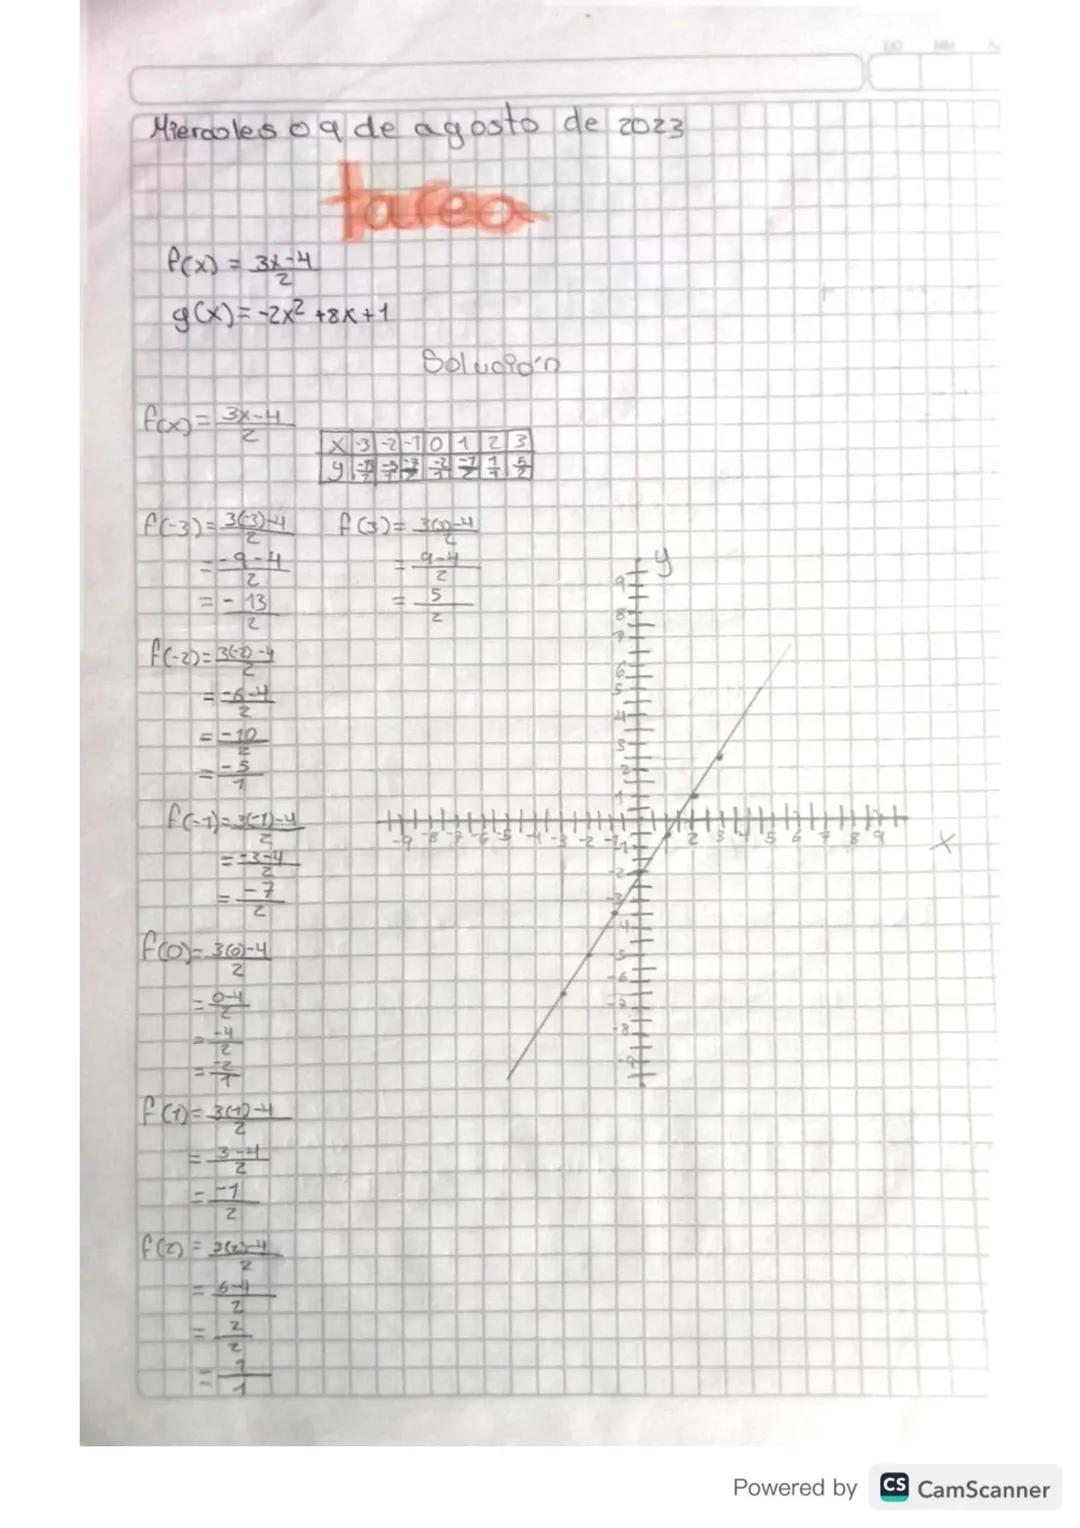 Miercoles 09 de agosto de 2023
tarea
f(x) = 3x-4/2
g(x) = -2x² +8x+1
Solución
f(x) = 3x-4/2
x -3 -2 -1 0 1 2 3
y -13/2 -5/1 -7/2 -2/1 -1/2 1/1 5/2
f(-3) = 3(-3)-4/2
= -9-4/2
= -13/2
f(3) = 3(3)-4/2
= 9-4/2
= 5/2
f(-2) = 3(-2)-4/2
= -6-4/2
= -10/2
= -5/1
f(-1) = 3(-1)-4/2
= -3-4/2
= -7/2
f(0) = 3(0)-4/2
= 0-4/2
= -4/2
= -2/1
f(1) = 3(1)-4/2
= 3-4/2
= -1/2
f(2) = 3(2)-4/2
= 6-4/2
= 2/2
= 1/1
y
9
8
7
6
5
4
3
2
1
-9 -8 -7 -6 -5 -4 -3 -2 -1 2 3 4 5 6 7 8 9 x
-1
-2
-3
-4
-5
-6
-7
-8
-9
Powered by CS CamScanner